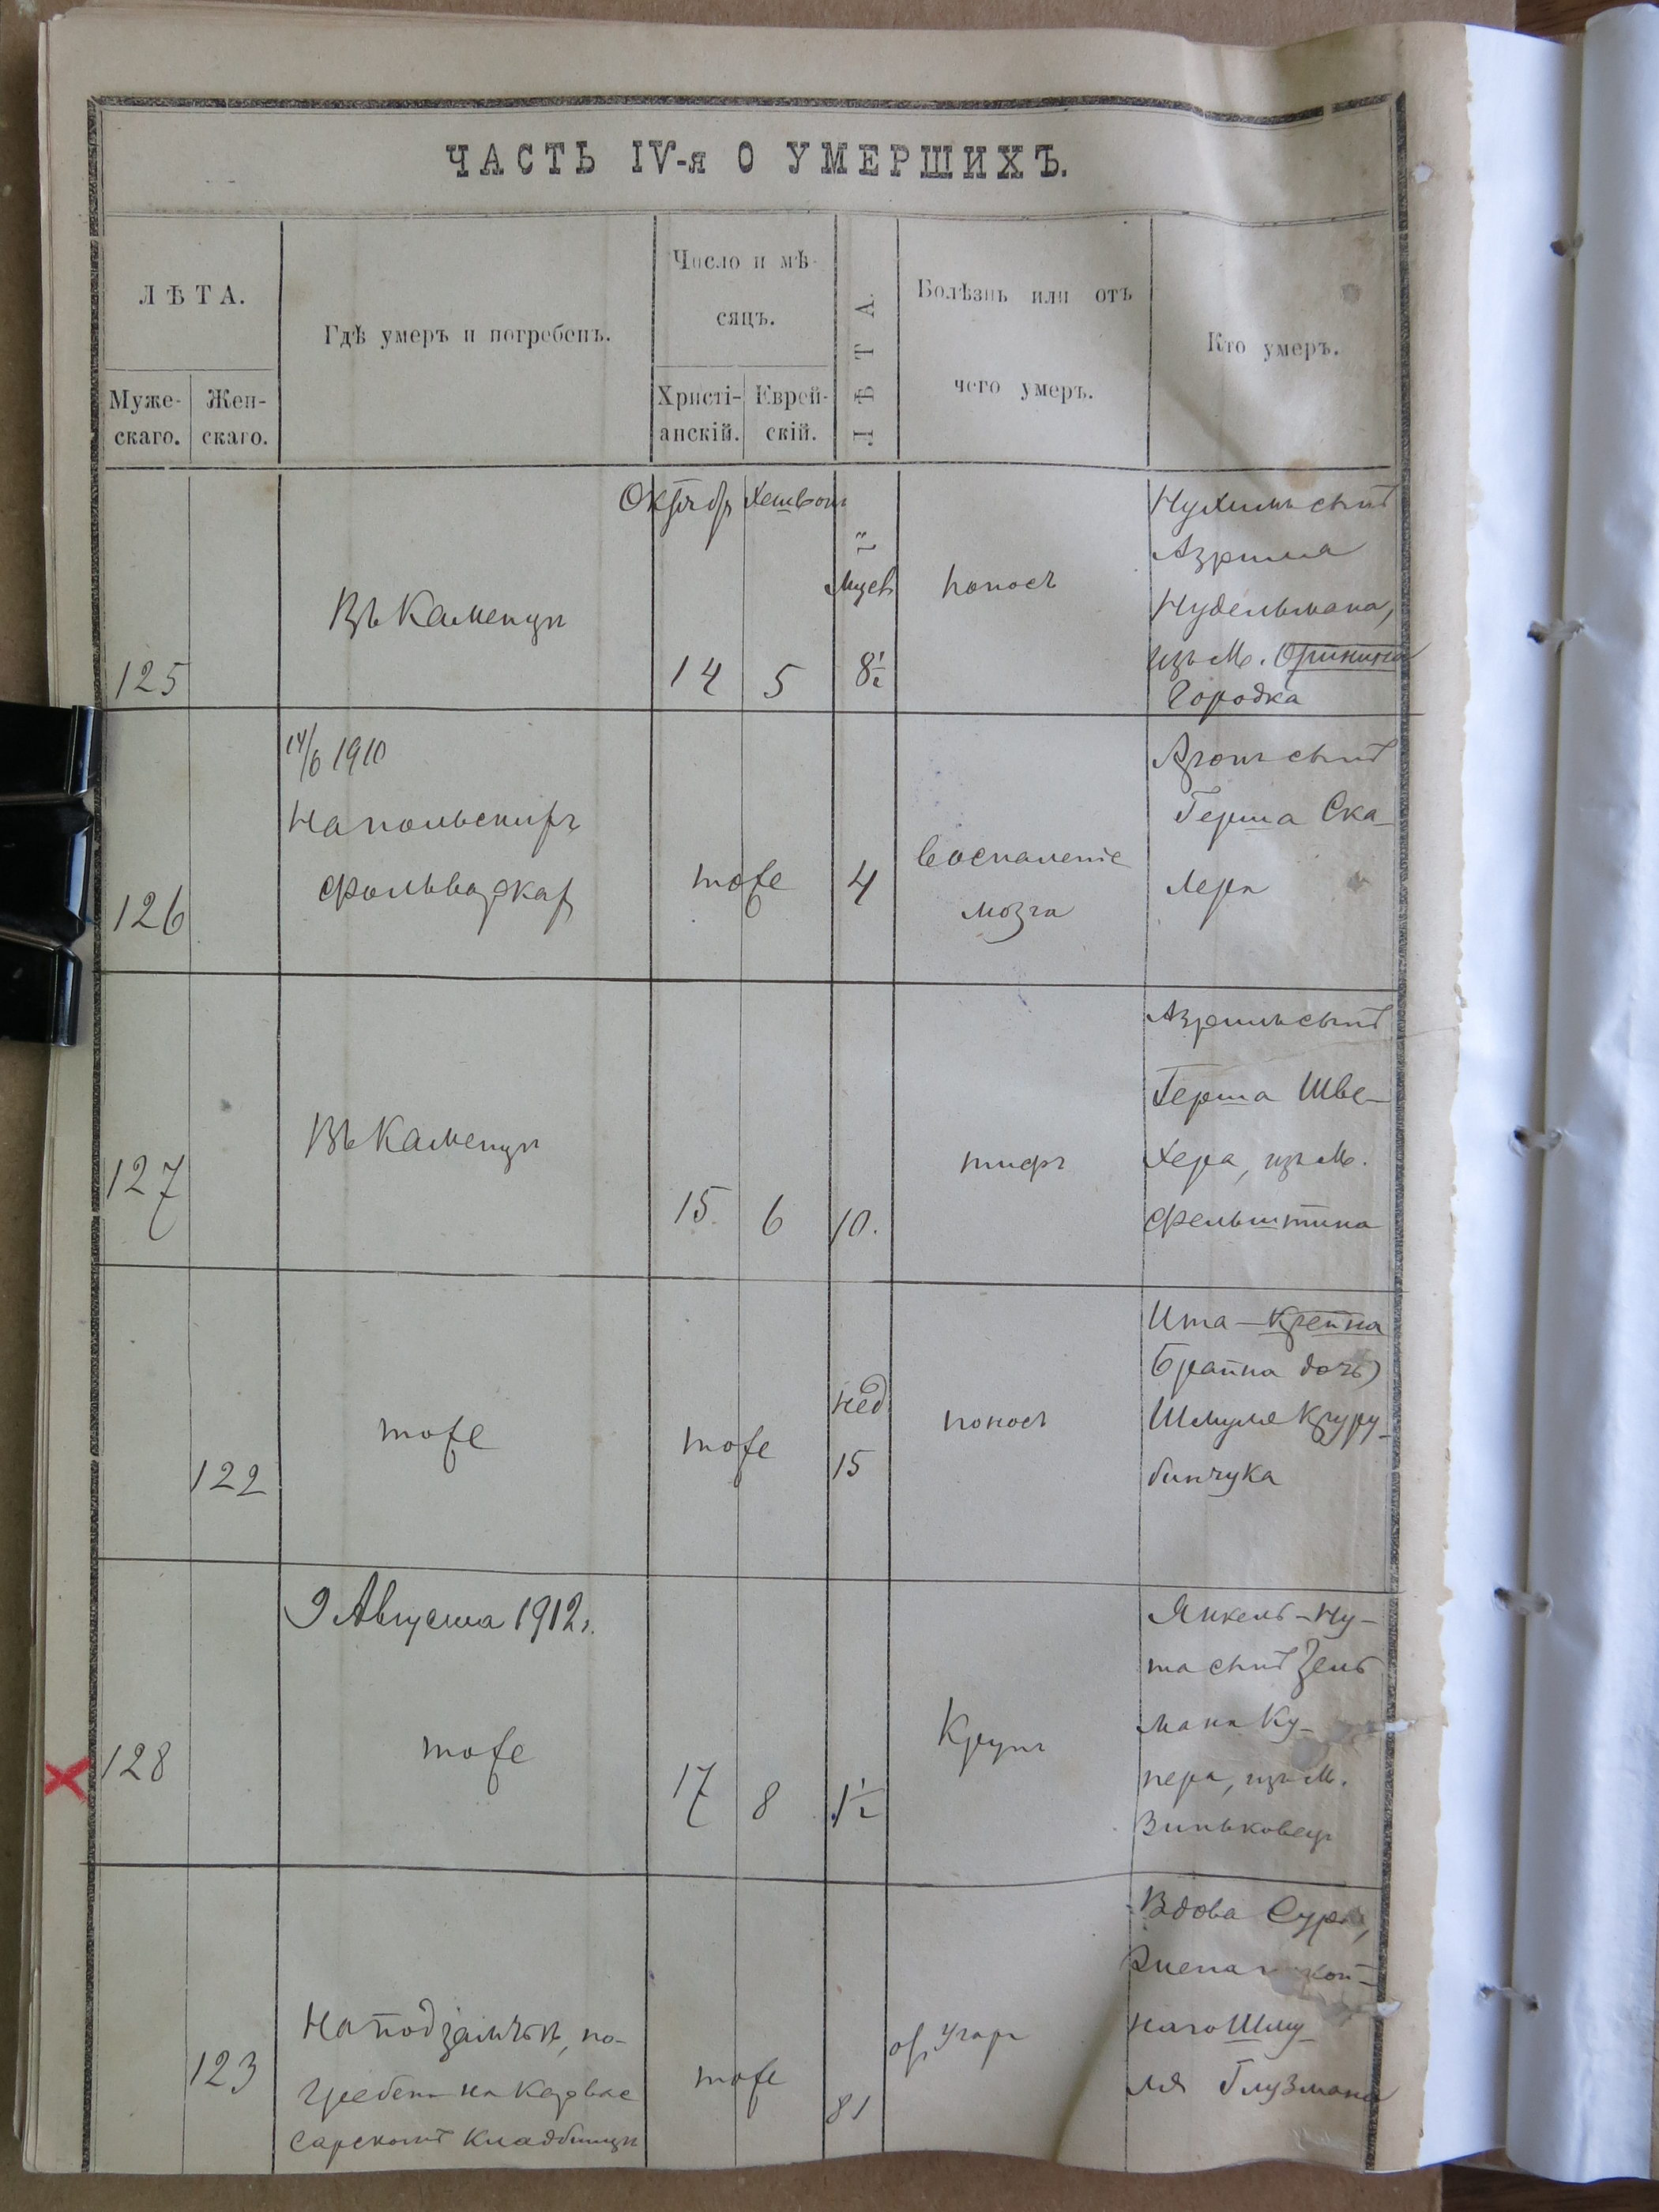 ЧАСТЬ IV-я О УМЕРШИХЪ.
ЛѢТА.
Муже-
скаго.
Жен-
скаго.
Гдѣ умеръ и погребенъ.
Число и мѣ-
сяцъ.
Христі-
анскій.
Еврей-
скій.
ЛѢТА.
Болѣзнь или отъ
чего умеръ.
Кто умеръ.
125
Въ Каменцѣ
Октябр
Хешвон
14
5
8½
поносъ
Нухимъ сынъ
Азрила
Нудельмана,
изъ м.
Городка
126
14/6 1910
На польскихъ
фольваркахъ
тоже
4
воспаленіе
мозга
Аронъ сынъ
Герша Ска-
лера
127
Въ Каменцѣ
15
6
10.
тифъ
Азриль сынъ
Герша Шве-
хера, изъ м.
Фельштина
122
тоже
тоже
нед
15
поносъ
Ита-Крейна
Брайна дочь
Шмуля
бинчука
128
9 Августа 1912 г.
тоже
17
8
1½
Крупъ
Янкель-Ну-
та сынъ Зель
мана Ку-
пера, изъ м.
Зиньковецъ
123
На подзамчьѣ, по-
гребен на Карвас
сарскомъ кладбищѣ
тоже
81
от угара
Вдова Сура,
жена кой-
наго Шму
ля Глузмана